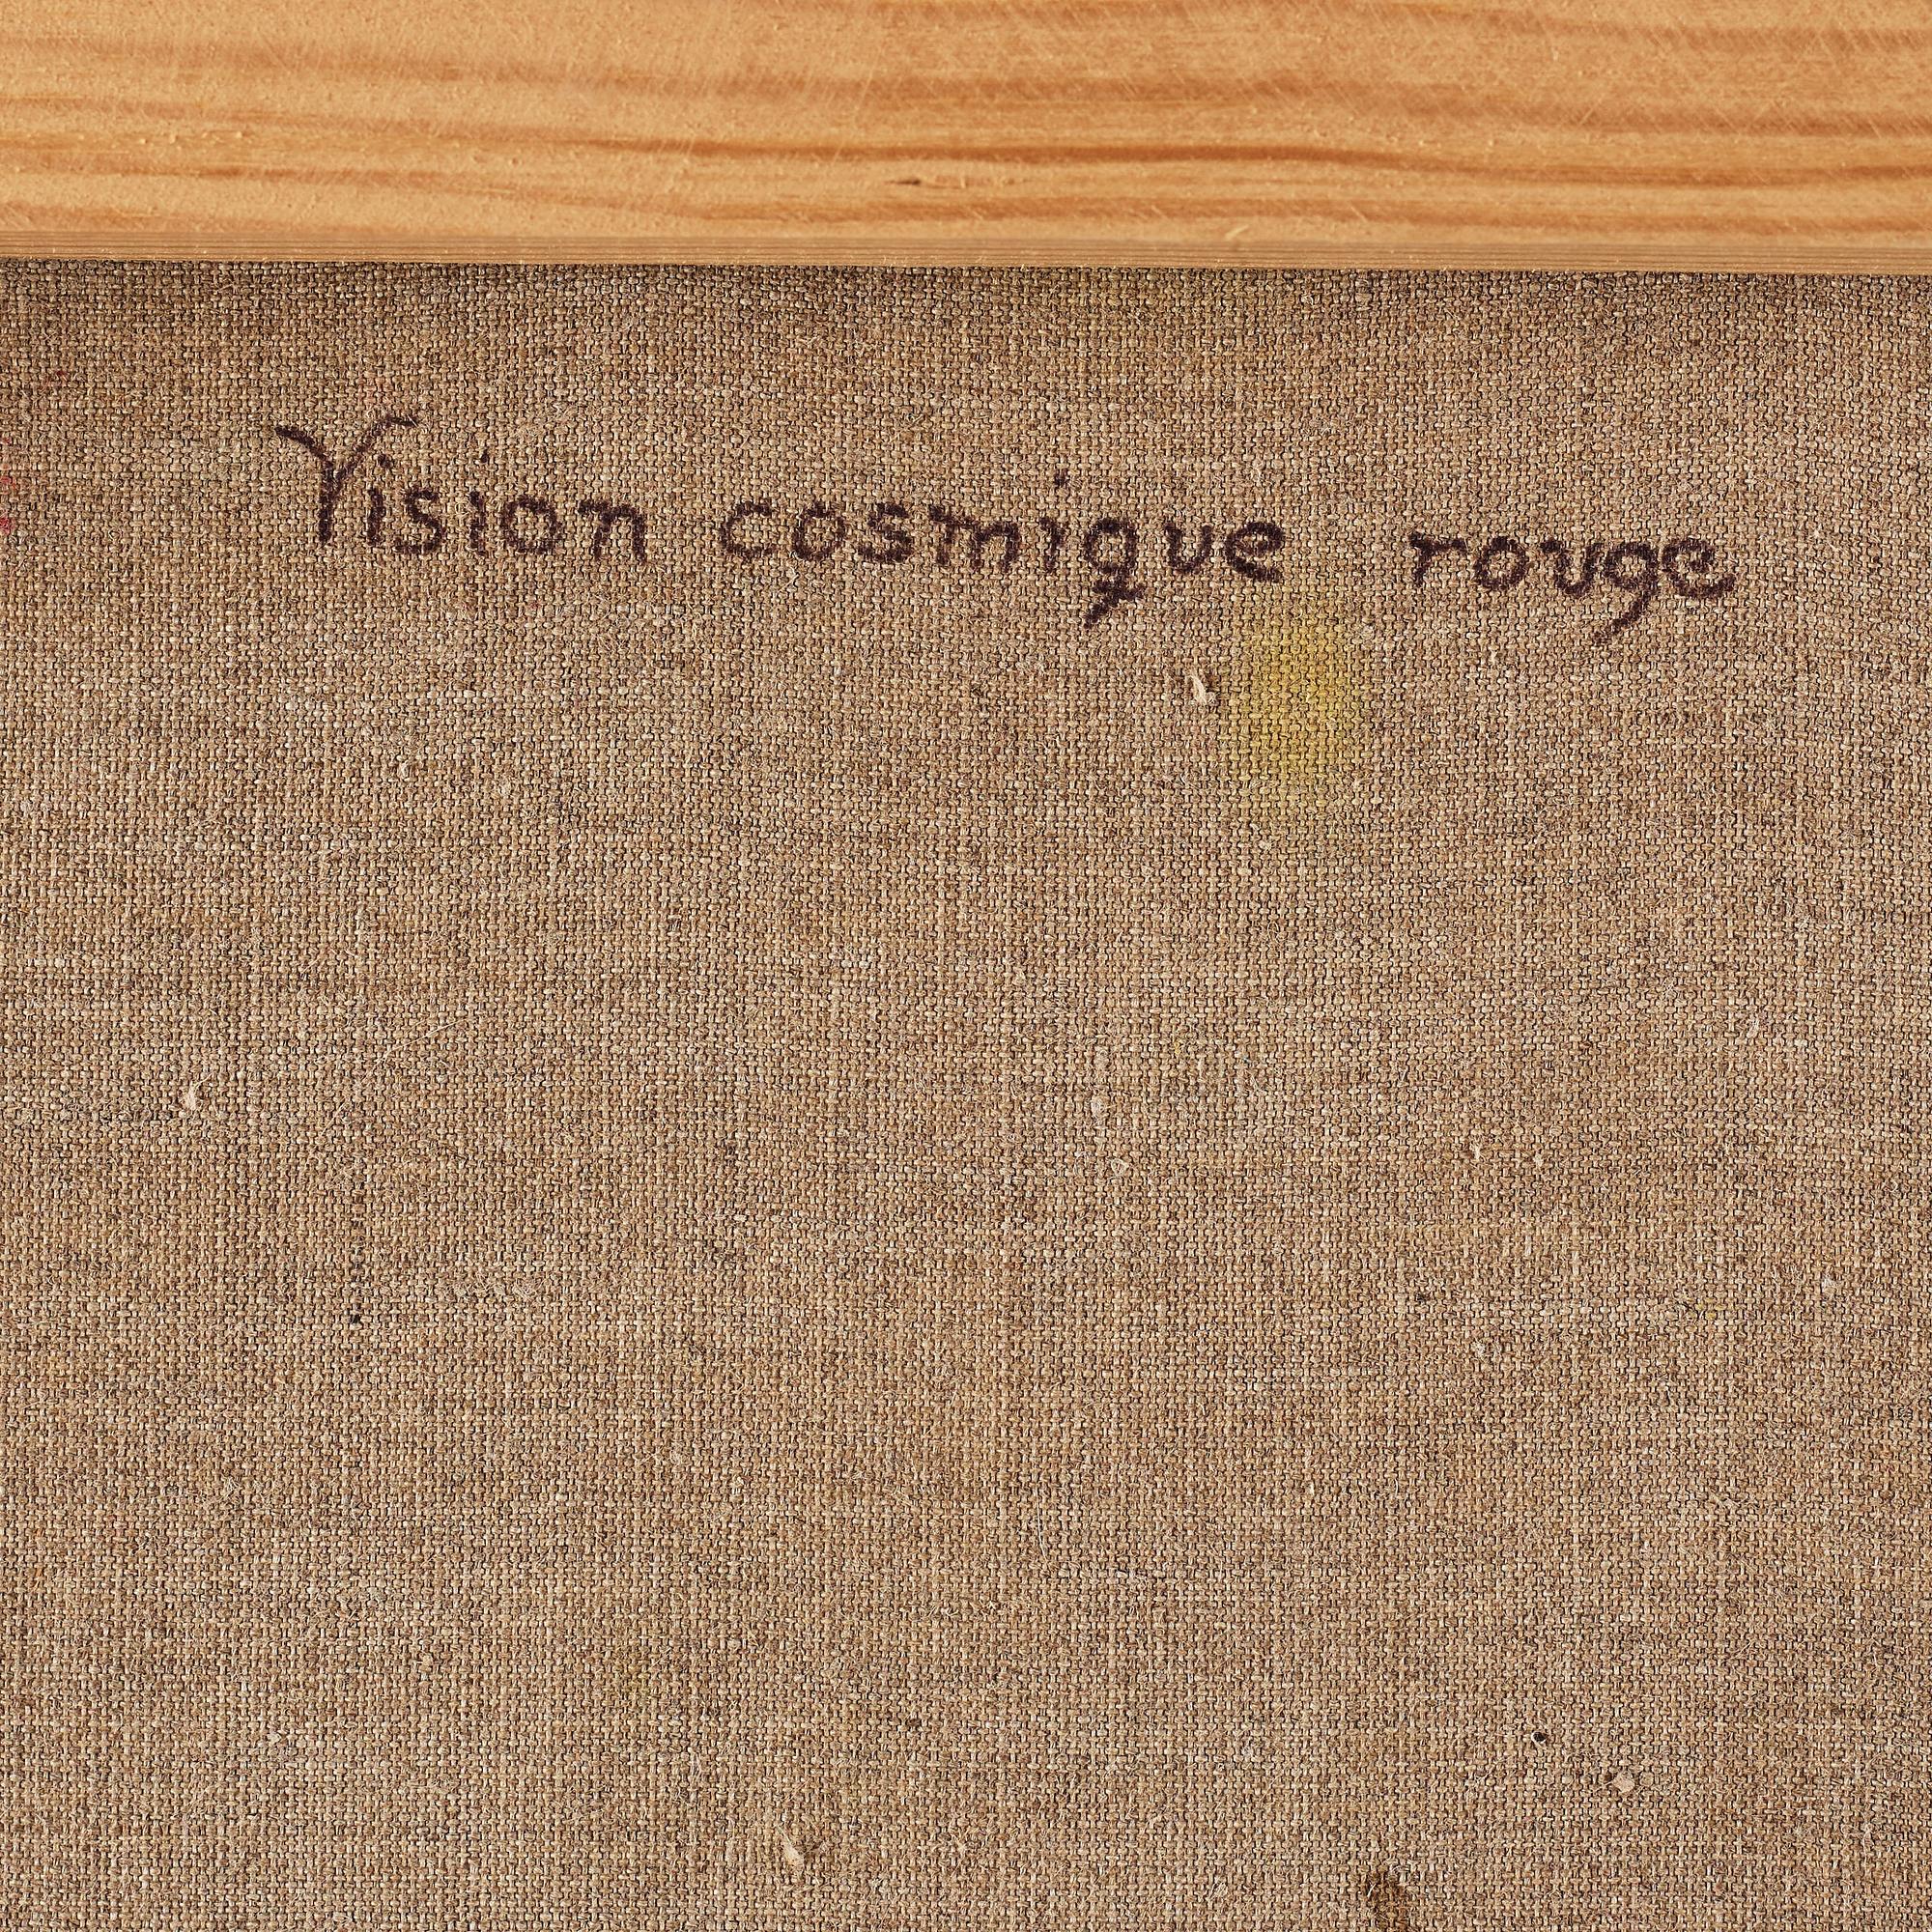 Vision cosmique rouge